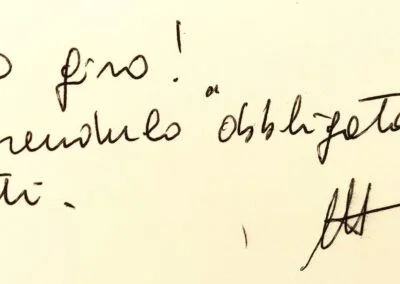 o giro!
rendulo "obbligato
tti.